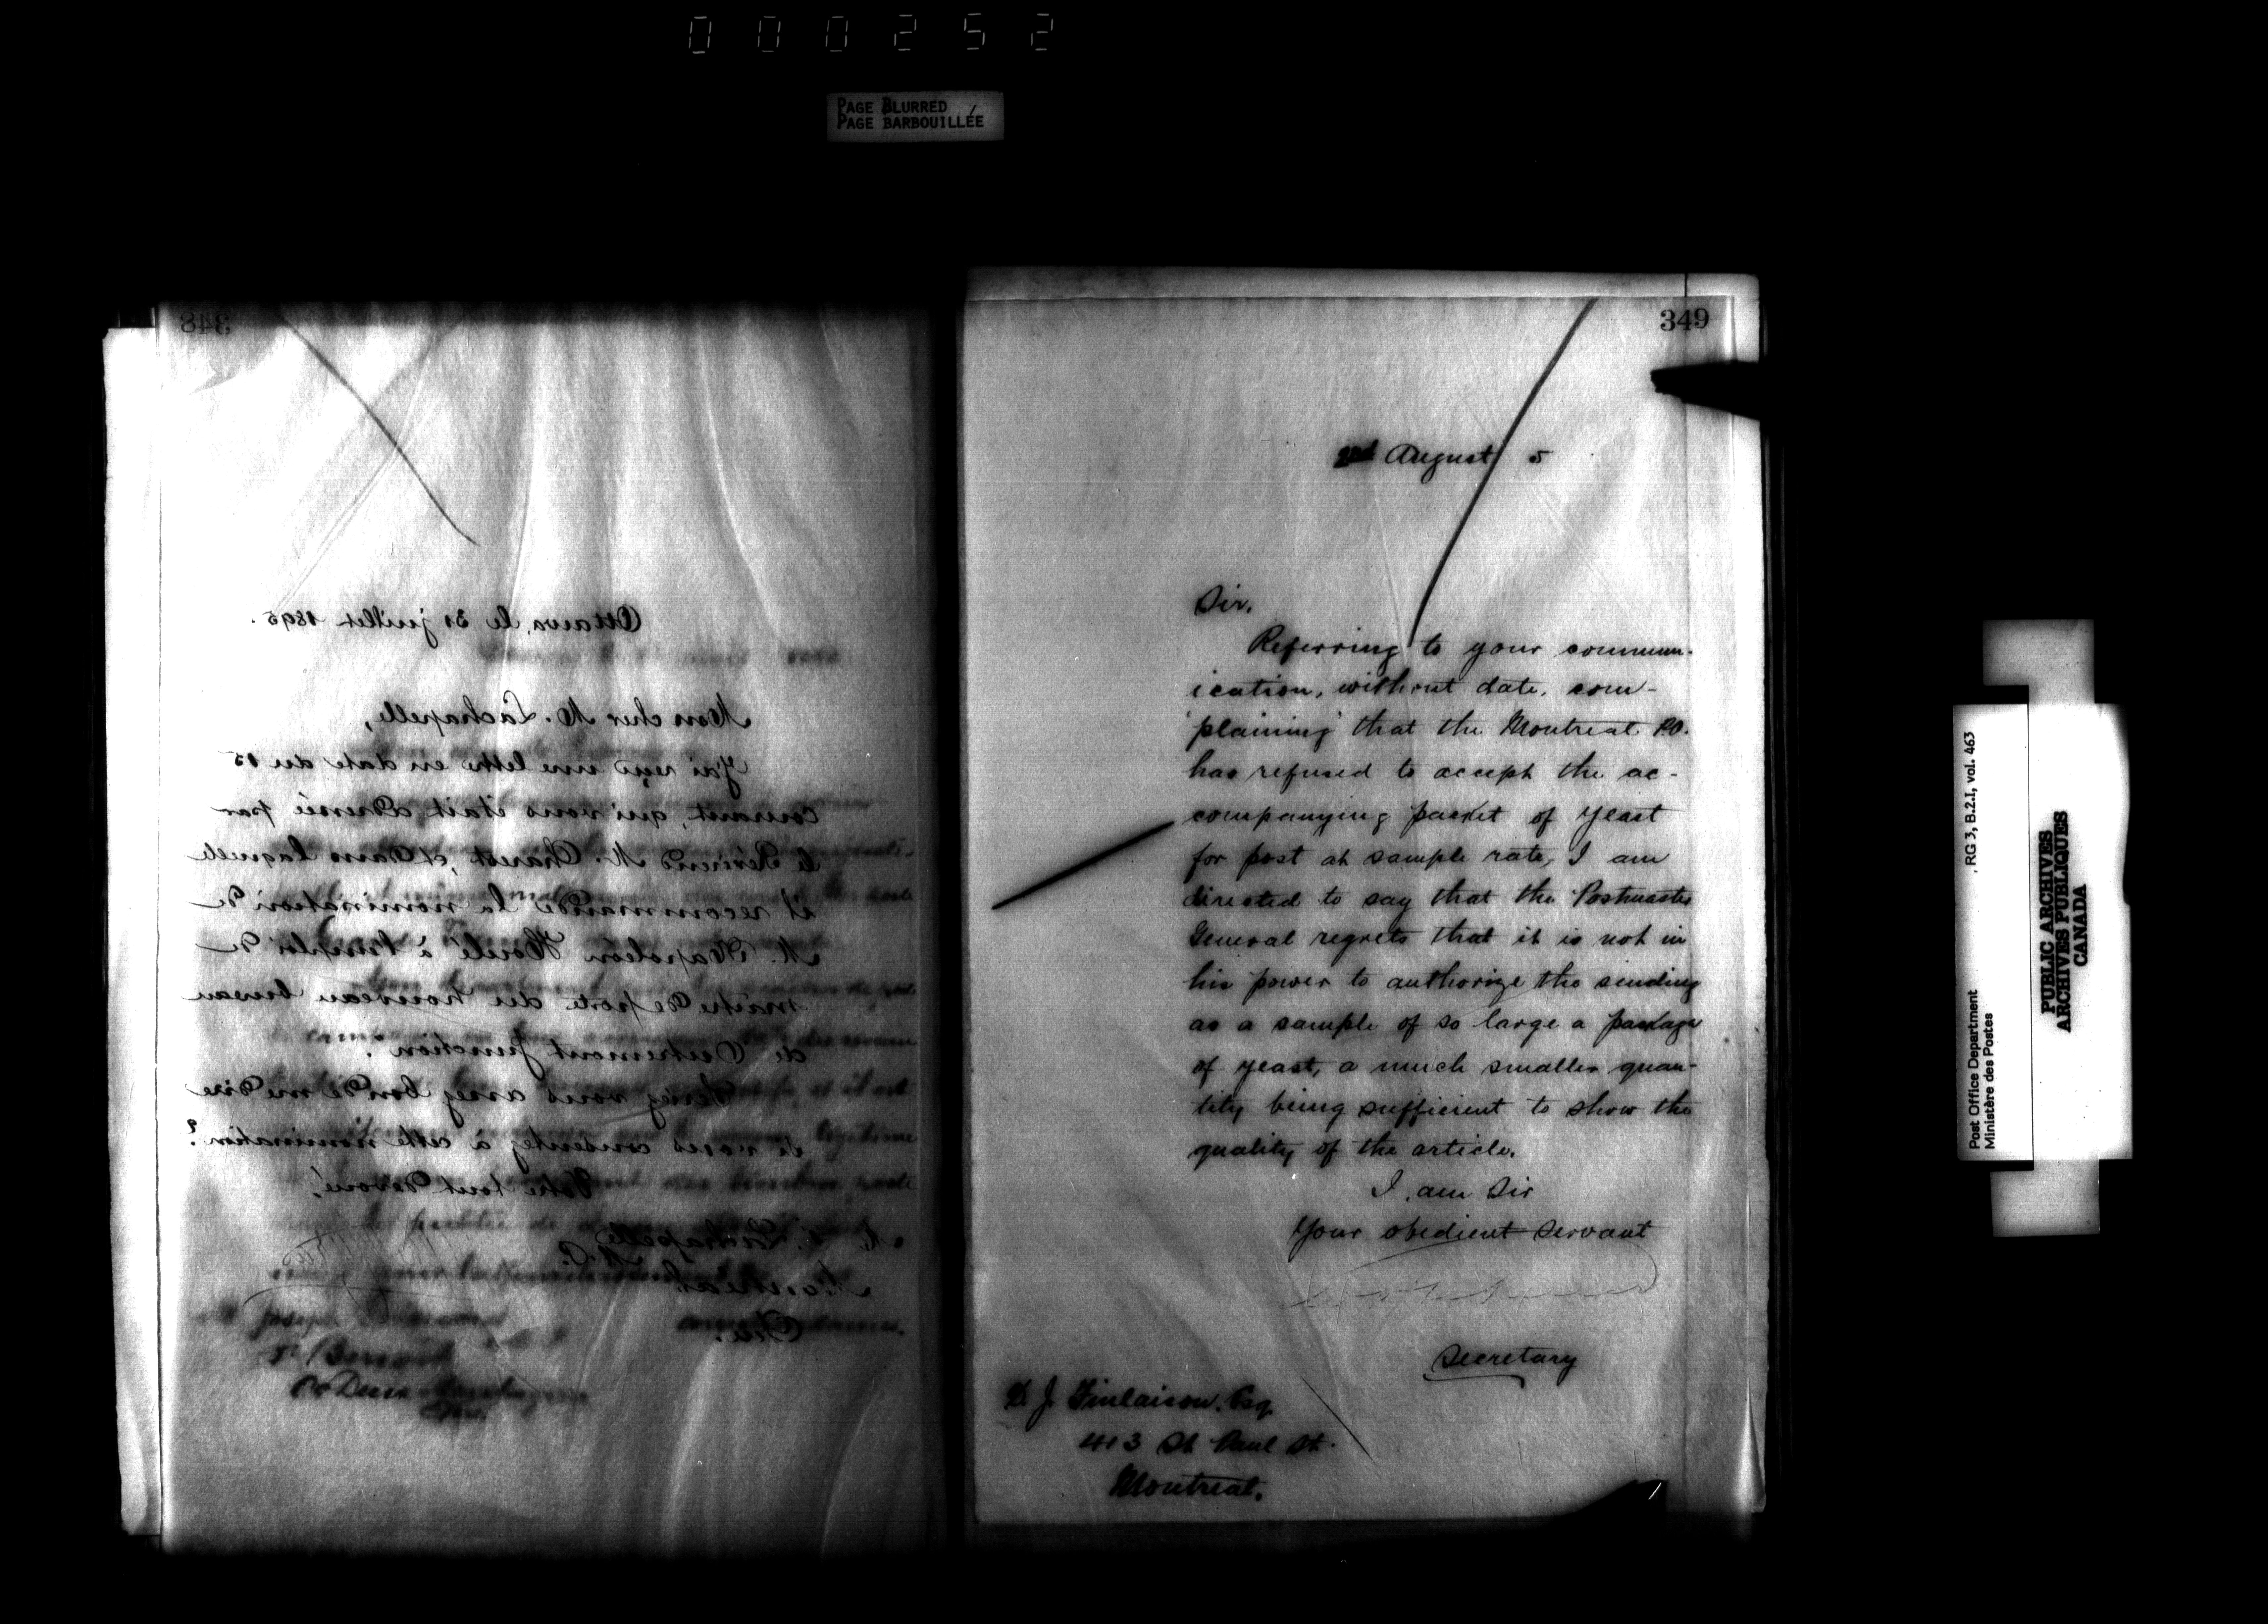 000252
PAGE BLURRED
PAGE BARBOUILLÉE
348
Ottawa, le 31 juillet 1895.
Mon cher M. Lachapelle,
J'ai reçu une lettre en date du 15
courant, qui vous était adressée par
le Révérend M. Charest, et dans laquelle
il recommande la nomination de
M. Napoléon à l'emploi de
maître de poste du nouveau bureau
de Outremont Junction.
Seriez vous assez bon de me dire
si vous consentez à cette nomination?
Votre tout dévoué,
Lachapelle
M.P.
Montréal
Que.
349
2nd August 5
Sir,
Referring to your commun-
ication, without date, com-
plaining that the Montreal P.O.
has refused to accept the ac-
companying packet of yeast
for post at sample rate, I am
directed to say that the Postmaster
General regrets that it is not in
his power to authorize the sending
as a sample of so large a package
of yeast, a much smaller quan-
tity being sufficient to show the
quality of the article.
I am Sir
Your obedient servant
Secretary
D. J. Finlaison, Esq.
413 St Paul St.
Montreal.
Post Office Department
Ministère des Postes
, RG 3, B.2.I, vol. 463
PUBLIC ARCHIVES
ARCHIVES PUBLIQUES
CANADA